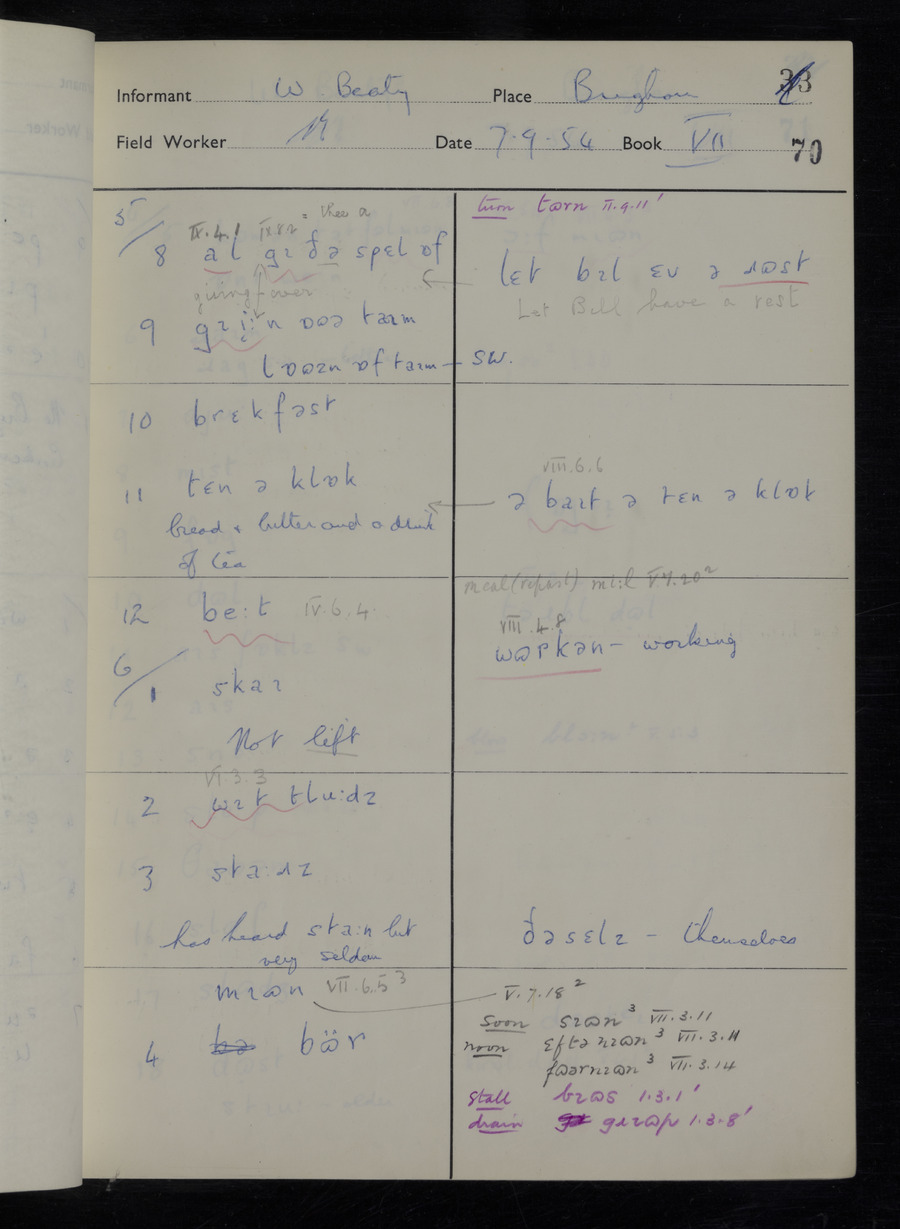 Informant W. Beaty Place Brigham 33
Field Worker Date 7.9.54 Book VII 70
5/
IX.4.1 IX.8.2 = thee a
8 al gɪ ðə spɛl ɒf
giving over
9 gɪi:n ɒʊə taɪm
lɒʊzn ɒf taɪm – SW.
10 brɛkfəst
11 tɛn ə klɒk
bread & butter and a drink
of tea
12 be:t IV.6.4.
6/
1 skaɪ
Not lift
VI.3.3
2 wɪt tlu:dz
3 sta:ɹz
has heard sta:n but
very seldom
mɪən VII.6.5³
4 bɷ̈t
turn tɷrn II.9.11¹
lɛt bɪl ɛv ə ɹɷst
Let Bill have a rest
VIII.6.6
ə baɪt ə tɛn ə klɒk
meal (repast) mi:l V.7.20²
VIII.4.8
wɷrkən – working
ðəsɛlz – themselves
V.7.18²
soon sɪɷn³ VII.3.11
noon ɛftənɪɷn³ VII.3.11
fɷərnɪɷn³ VII.3.14
stall bɪɷs 1.3.1¹
drain gɹɪɷp 1.3.8¹